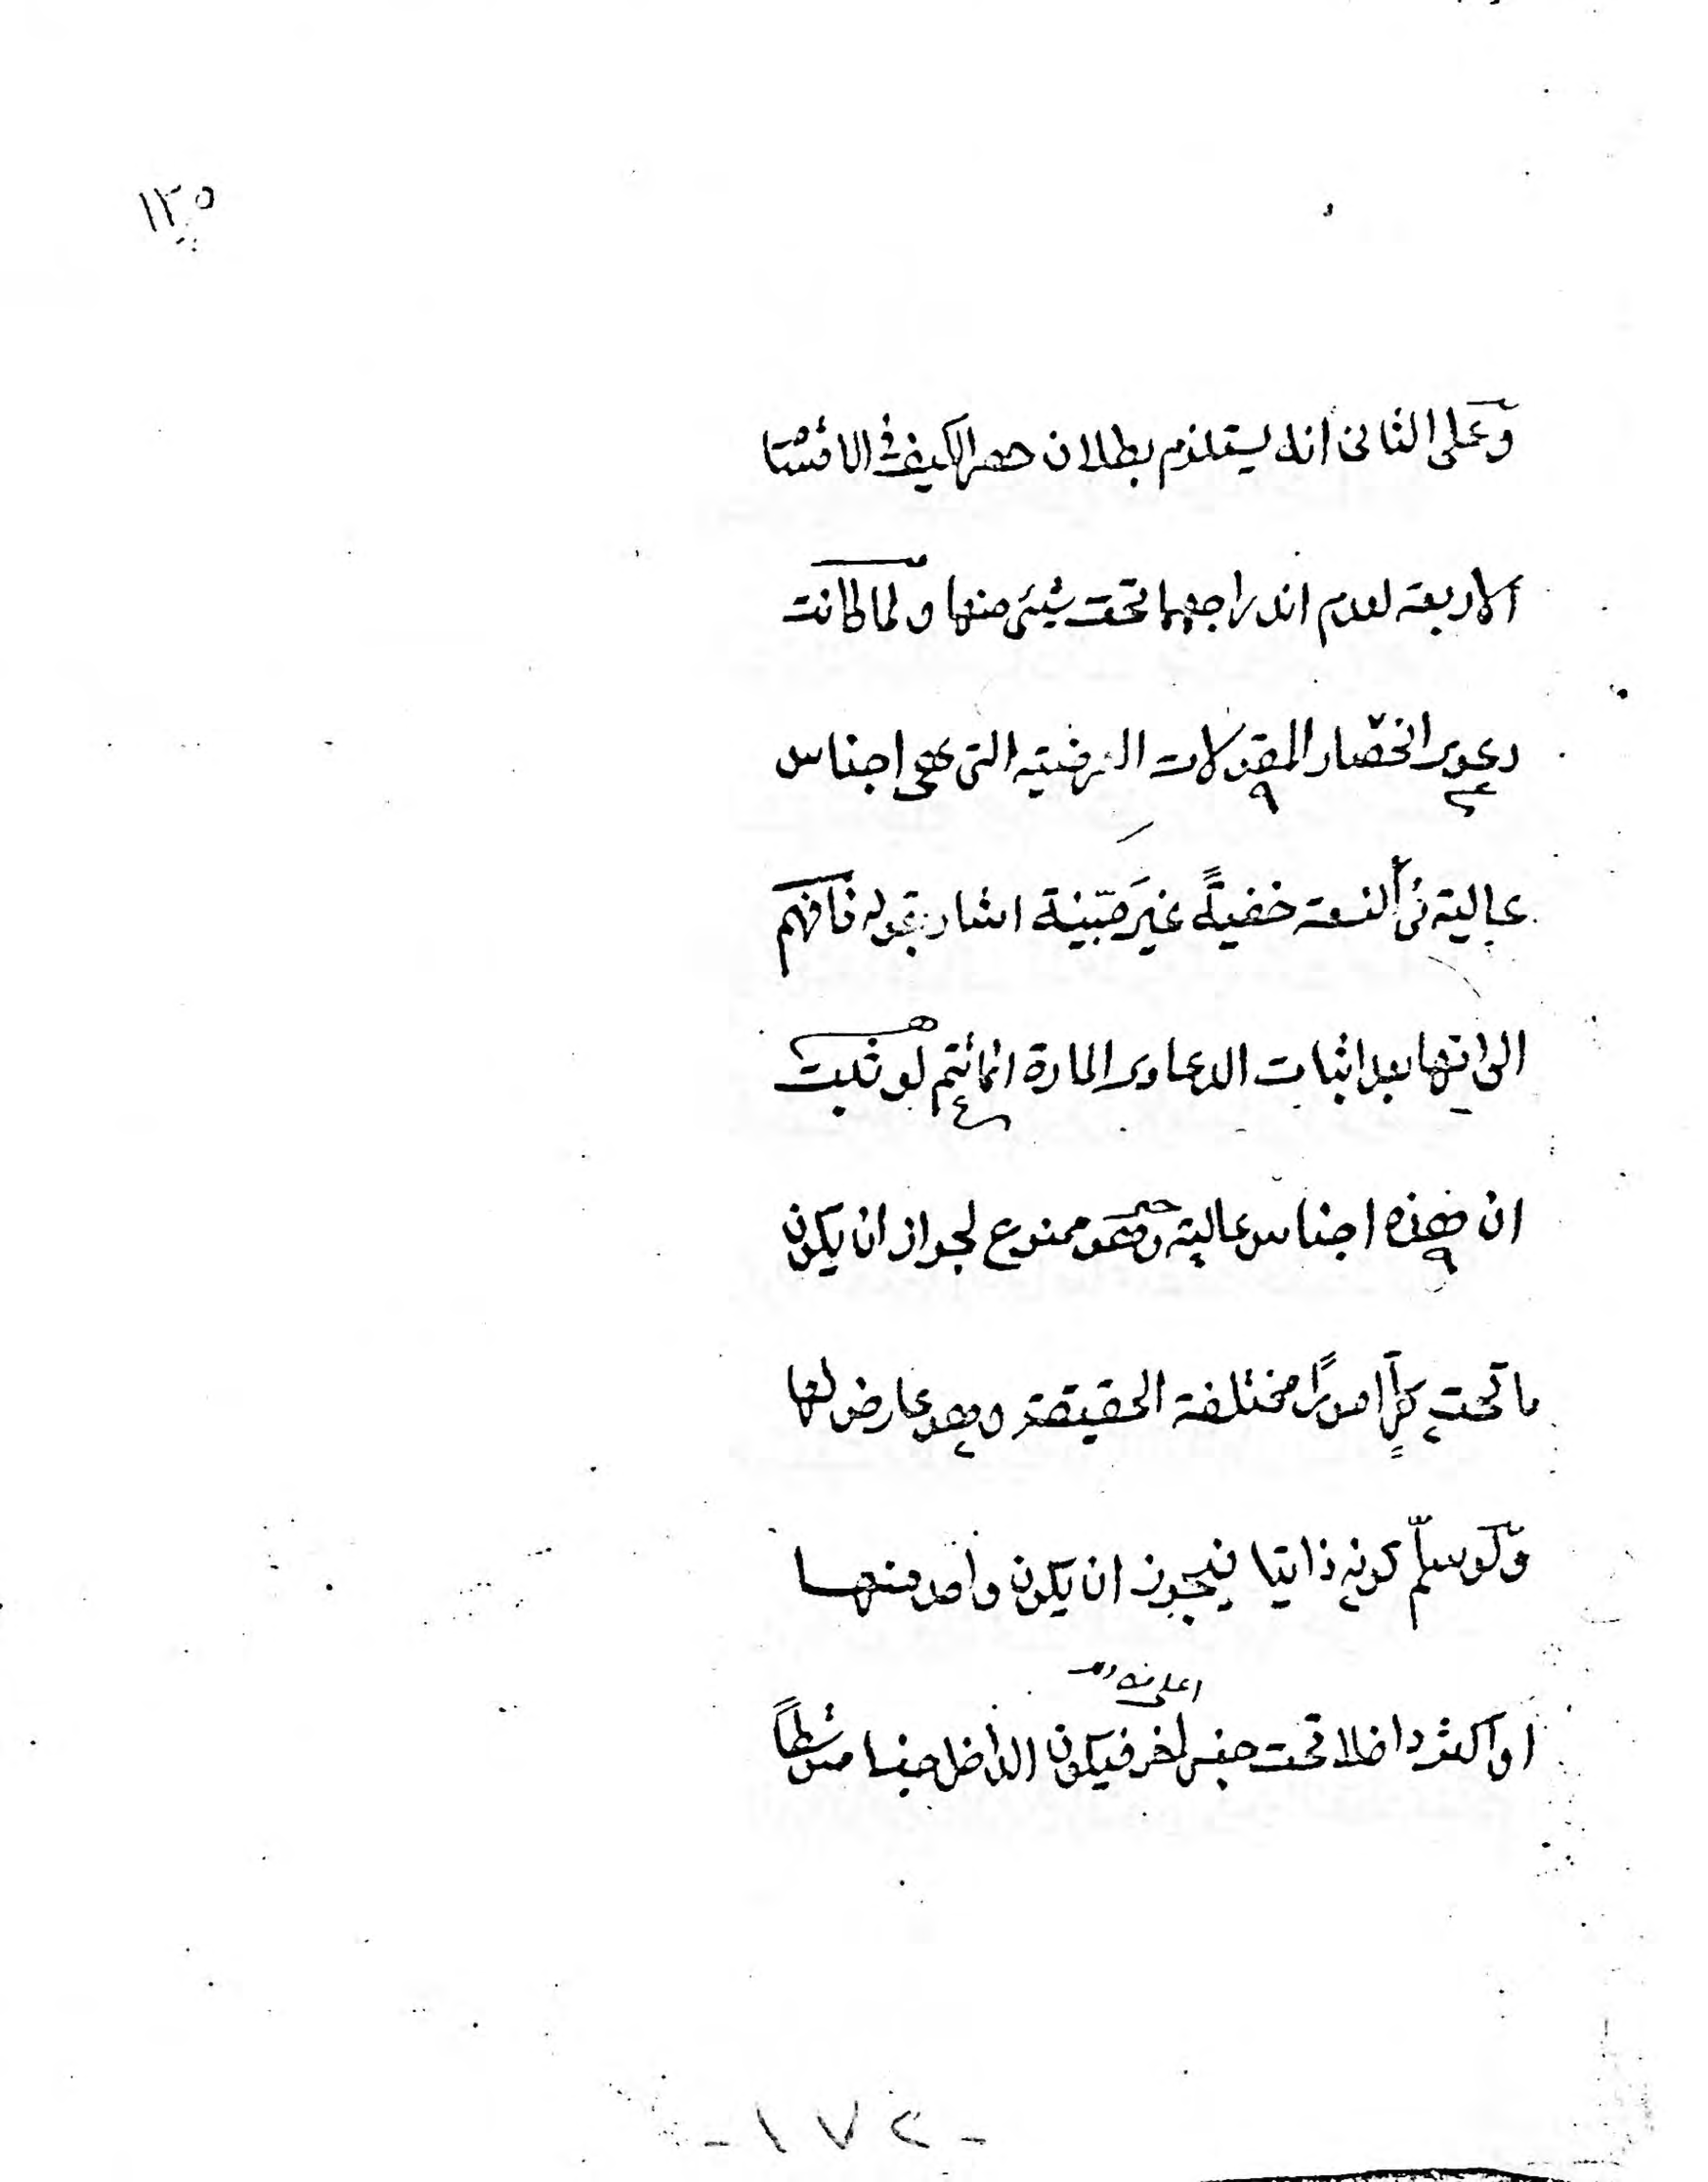 ١٢٥
وعلى الثاني انه يستلزم بطلان حصر الكيف في الاقسا
الاربعة لعدم اندراجهما تحت شيئ منها ولما كانت
دعوى انحصار المقولات العرضية التي هي اجناس
عالية في التسعة خفيةً غيرَ مبيّنة اشار بقوله فافهم
الى انها بعد اثبات الدعاوى المارة انما تتم لو ثبت
ان هذه اجناس عالية وهو ممنوع لجواز ان يكون
ما تحت كلٍّ امورًا مختلفة الحقيقة وهو عارض لها
ولو سلّم كونه ذاتيا فيجوز ان يكون واحد منها
اعلى منه
او اكثر داخلا تحت جنس اخر فيكون الداخل جنسا متوسطاً
- ١٧٢ -